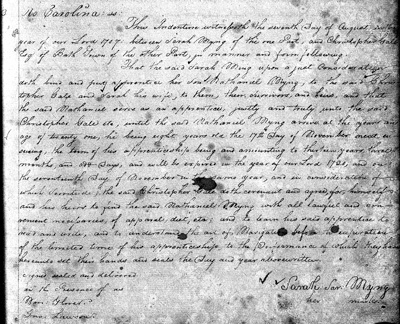 No Carolina: ss:
This Indenture witnesseth the seventh Day of August in the
year of our Lord 170 between Sarah Myng of the one Part, and Christopher Gale
Esq of Bath Town of the other Part, in manner and form following
That the said Sarah Myng upon a Just Consideration
doth bind and put apprentice her Son Nathaniel Myng to the said Chris
topher Gale and Sarah his wife, to them, them survivors and heirs, and that
the said Nathaniel serve as an apprentice, quietly and truly unto the said
Christopher Gale etc, until the said Nathaniel Myng arrive at the years and
age of twenty one, he being eight years old the 17th Day of November next en
suing, the term of his apprenticeship being and amounting to thirteen years three
months and Days, and will be expired in the year of our Lord 1721, and on
the seventeenth Day of November in same year, and in consideration of
which Service the said Christopher Gale doth covenant and agree for himself
and his heirs to find the said Nathaniel Myng with all lawful and con
venient necessaries of apparel diet, etc; and to learn his said apprentice to
read and write, and to understand the art of before the expiration
of the limited time of his apprenticeship to the Performance of which they have
hereunto set their hands and seals the Day and year above written
signed sealed and delivered
in the Presence of us
Sarah Myng
her mark
Lawson